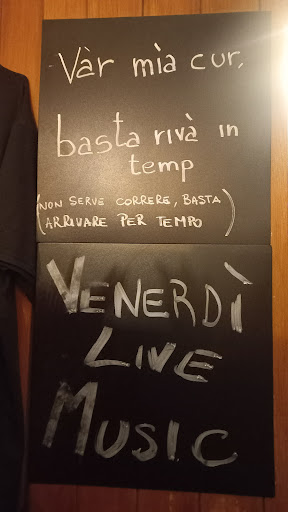 Vàr mìa cur,
basta rivà in
temp
(NON SERVE CORRERE, BASTA
ARRIVARE PER TEMPO)
VENERDÌ
LIVE
MUSIC